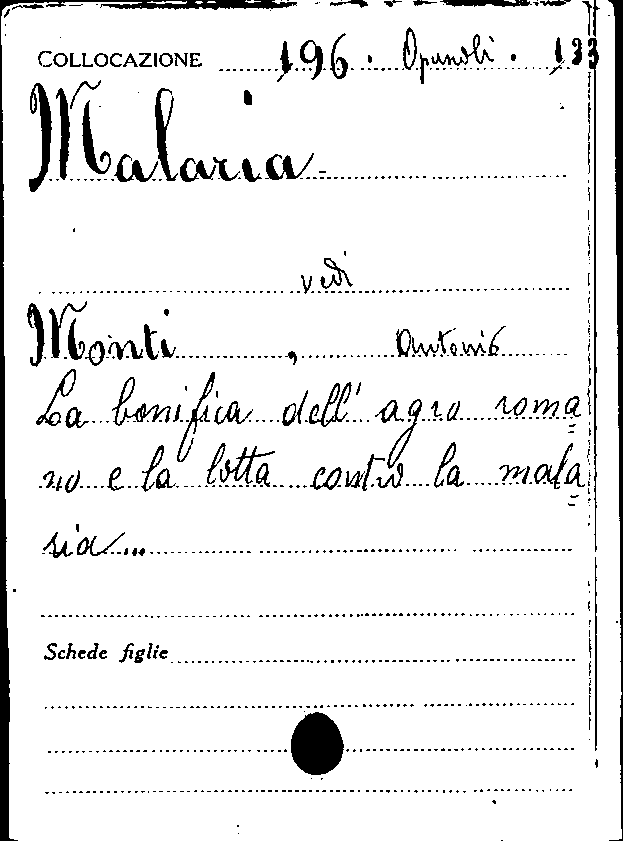 COLLOCAZIONE 196. Opuscoli. 133
Malaria
vedi
Monti, Antonio
La bonifica dell' agro roma=
no e la lotta contro la mala=
ria...
Schede figlie